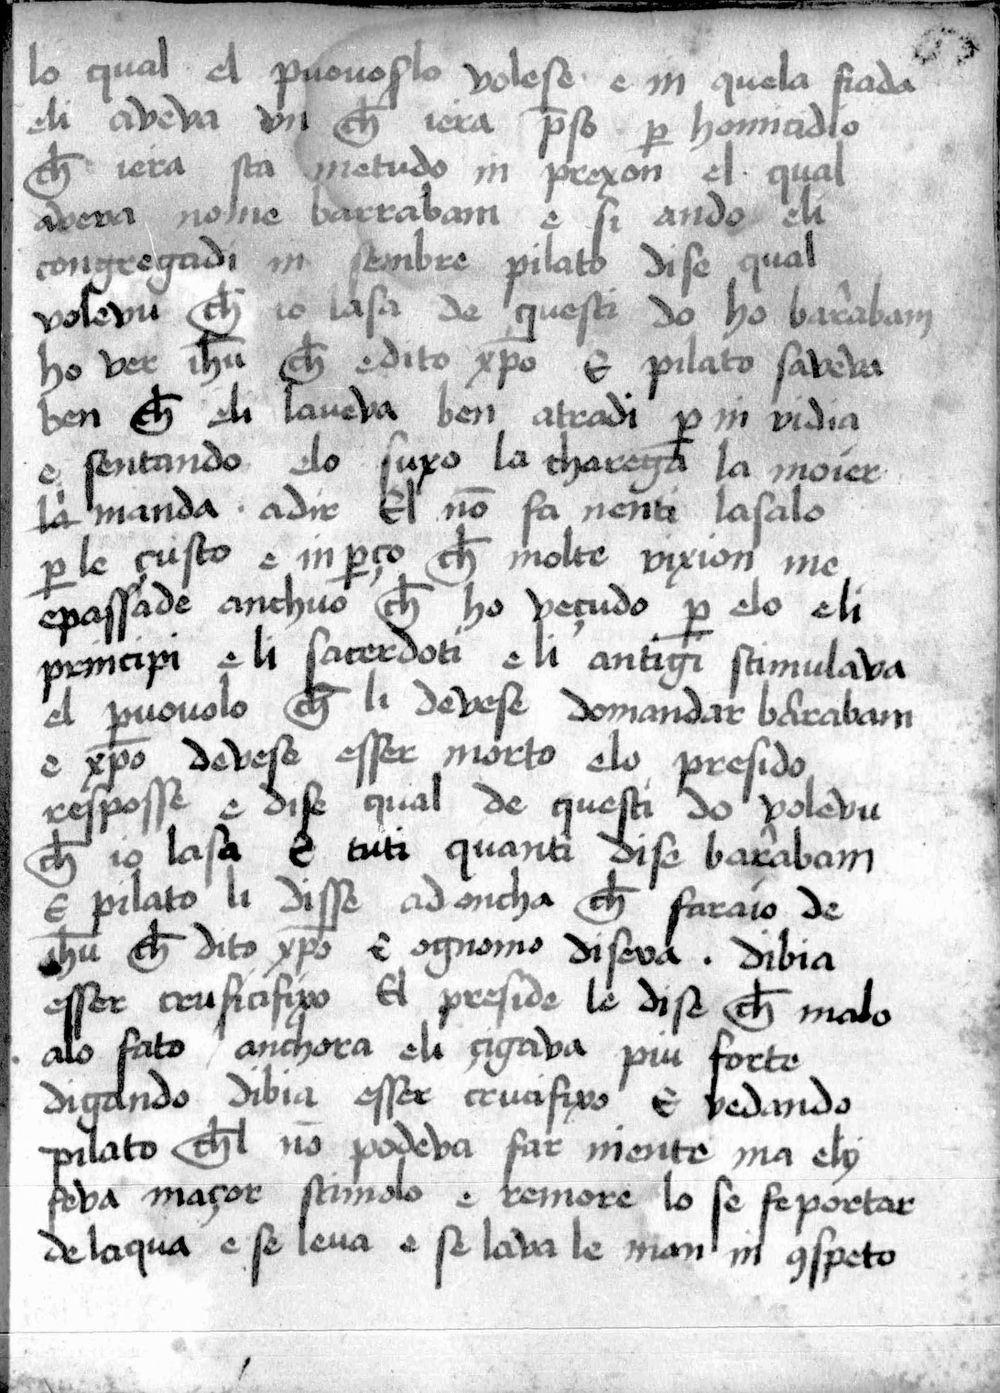 lo qual el puouolo volese e in quela fiada
eli aveva un ch̄ iera p̄so ꝑ homicidio
ch̄ iera sta metudo in prexon el qual
aveva nome barrabam e si ando eli
congregadi in sembre pilato dise qual
volevu ch̄ io lasa de questi do ho barabam
ho ver ih̄u ch̄ e dito xp̄o E pilato saveva
ben ch̄ eli laveva ben atradi ꝑ in vidia
e sentando elo suxo la charega la moier
la manda adir El nō fa nenti lasalo
ꝑ le çusto e in ꝑço ch̄ molte vixion me
epassade anchuo ch̄ ho veçudo ꝑ elo eli
principi e li sacerdoti e li antigi stimulava
el puouolo ch̄ li devese domandar barabam
e xp̄o devese esser morto elo presido
resposse e dise qual de questi do volevu
ch̄ io lasa E tuti quanti dise barabam
E pilato li disse adoncha ch̄ faraio de
ih̄u ch̄ dito xp̄o E ognomo diseva . dibia
esser crucifixo El preside le dise ch̄ malo
alo fato anchora eli çigava piu forte
digando dibia esser crucifixo E vedando
pilato ch̄l nō podeva far niente ma ely
feva maçor stimolo e remore lo se fe portar
de laqua e se leva e se lava le man in ꝯspeto